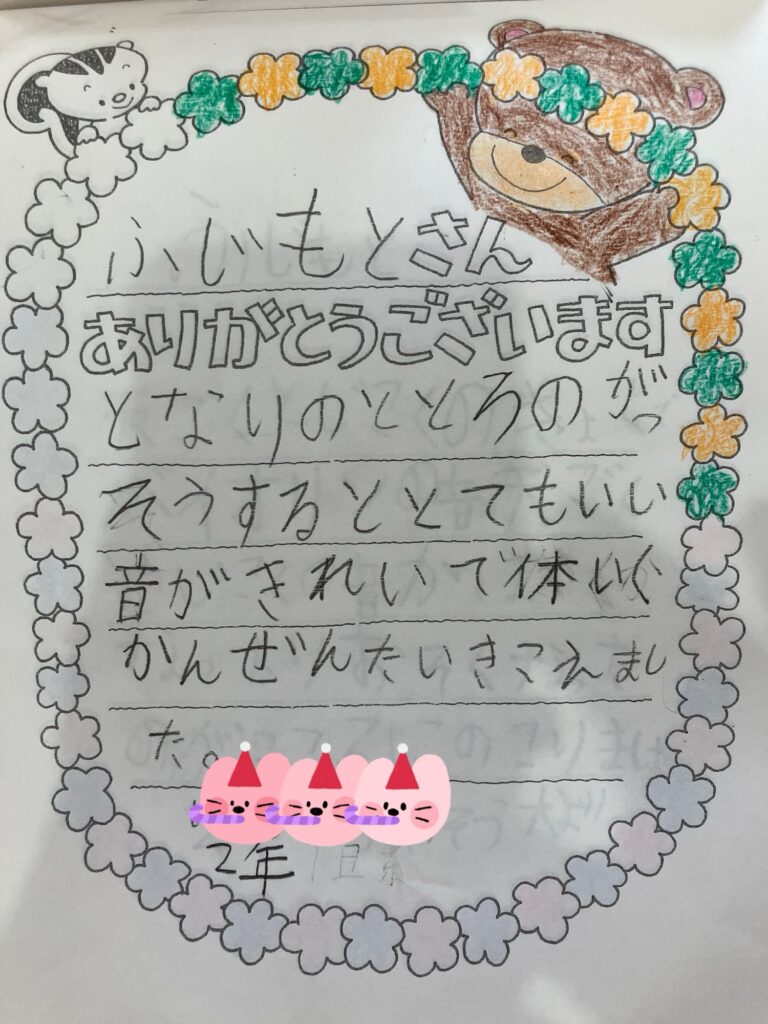 ふじもとさん
ありがとうございます
となりのととろのがっ
そうするととてもいい
音がきれいで体いく
かんぜんたいきこえまし
た。
2年1組